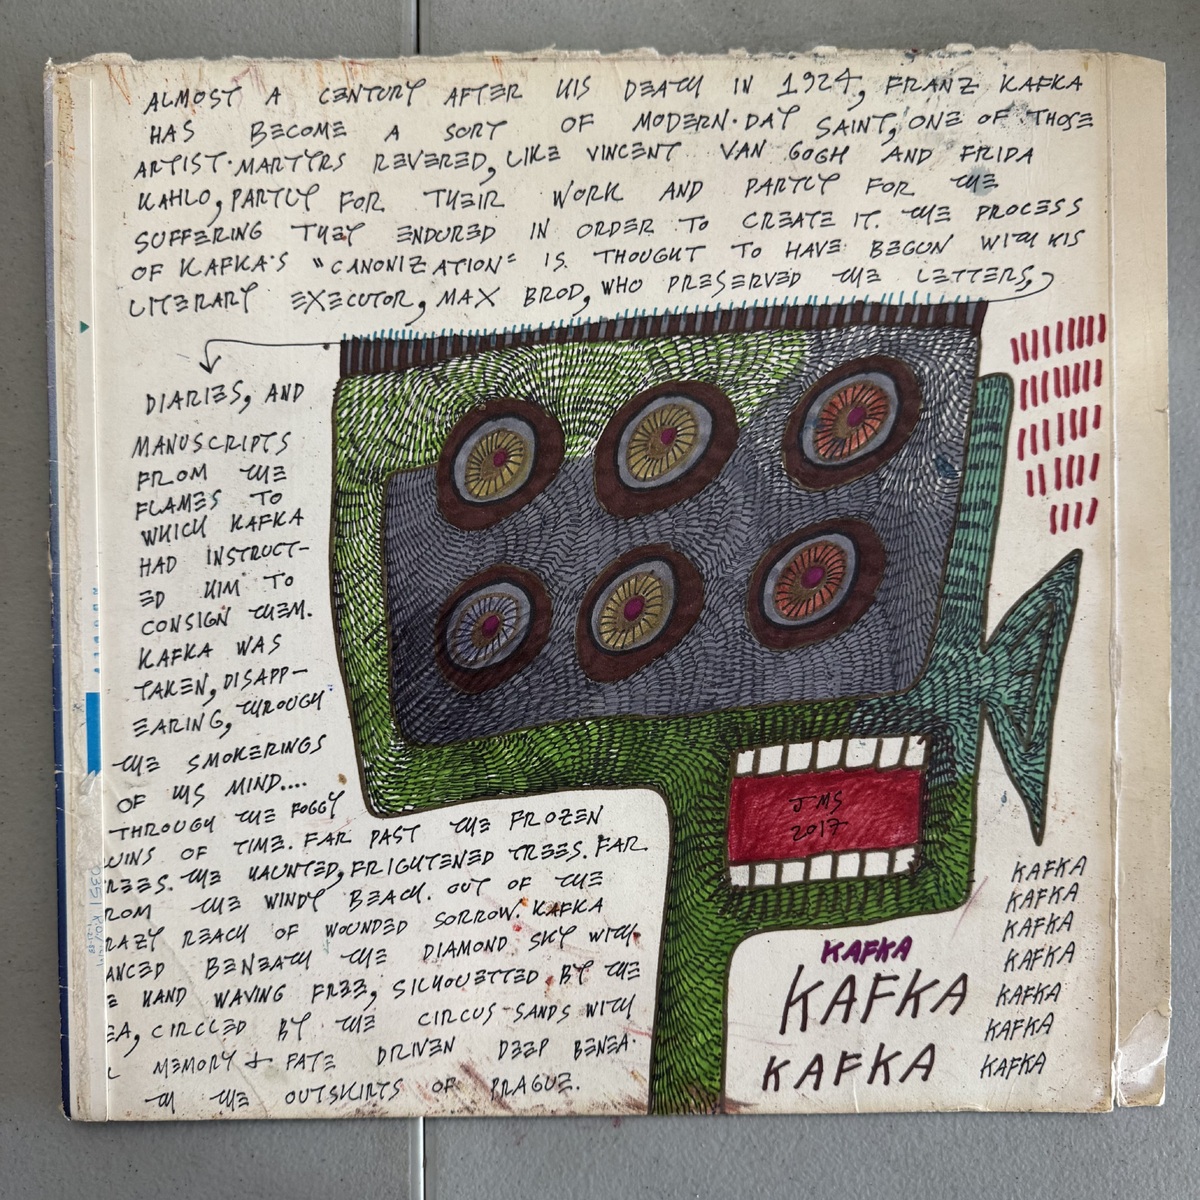 ALMOST A CENTURY AFTER HIS DEATH IN 1924, FRANZ KAFKA
HAS BECOME A SORT OF MODERN·DAY SAINT, ONE OF THOSE
ARTIST·MARTYRS REVERED, LIKE VINCENT VAN GOGH AND FRIDA
KAHLO, PARTLY FOR THEIR WORK AND PARTLY FOR THE
SUFFERING THEY ENDURED IN ORDER TO CREATE IT. THE PROCESS
OF KAFKA'S "CANONIZATION" IS THOUGHT TO HAVE BEGUN WITH HIS
LITERARY EXECUTOR, MAX BROD, WHO PRESERVED THE LETTERS,
DIARIES, AND
MANUSCRIPTS
FROM THE
FLAMES TO
WHICH KAFKA
HAD INSTRUCT-
ED HIM TO
CONSIGN THEM.
KAFKA WAS
TAKEN, DISAPP-
EARING, THROUGH
THE SMOKERINGS
OF HIS MIND....
THROUGH THE FOGGY
UINS OF TIME. FAR PAST THE FROZEN
REES. THE HAUNTED, FRIGHTENED TREES. FAR
ROM THE WINDY BEACH. OUT OF THE
RAZY REACH OF WOUNDED SORROW. KAFKA
ANCED BENEATH THE DIAMOND SKY WITH
E HAND WAVING FREE, SILHOUETTED BY THE
EA, CIRCLED BY THE CIRCUS SANDS WITH
L MEMORY + FATE DRIVEN DEEP BENEA·
TH THE OUTSKIRTS OF PRAGUE.
JMS
2017
KAFKA
KAFKA
KAFKA
KAFKA
KAFKA
KAFKA
KAFKA
KAFKA
KAFKA
KAFKA